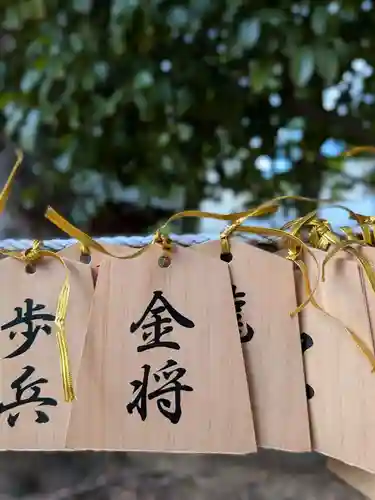 歩兵
金将